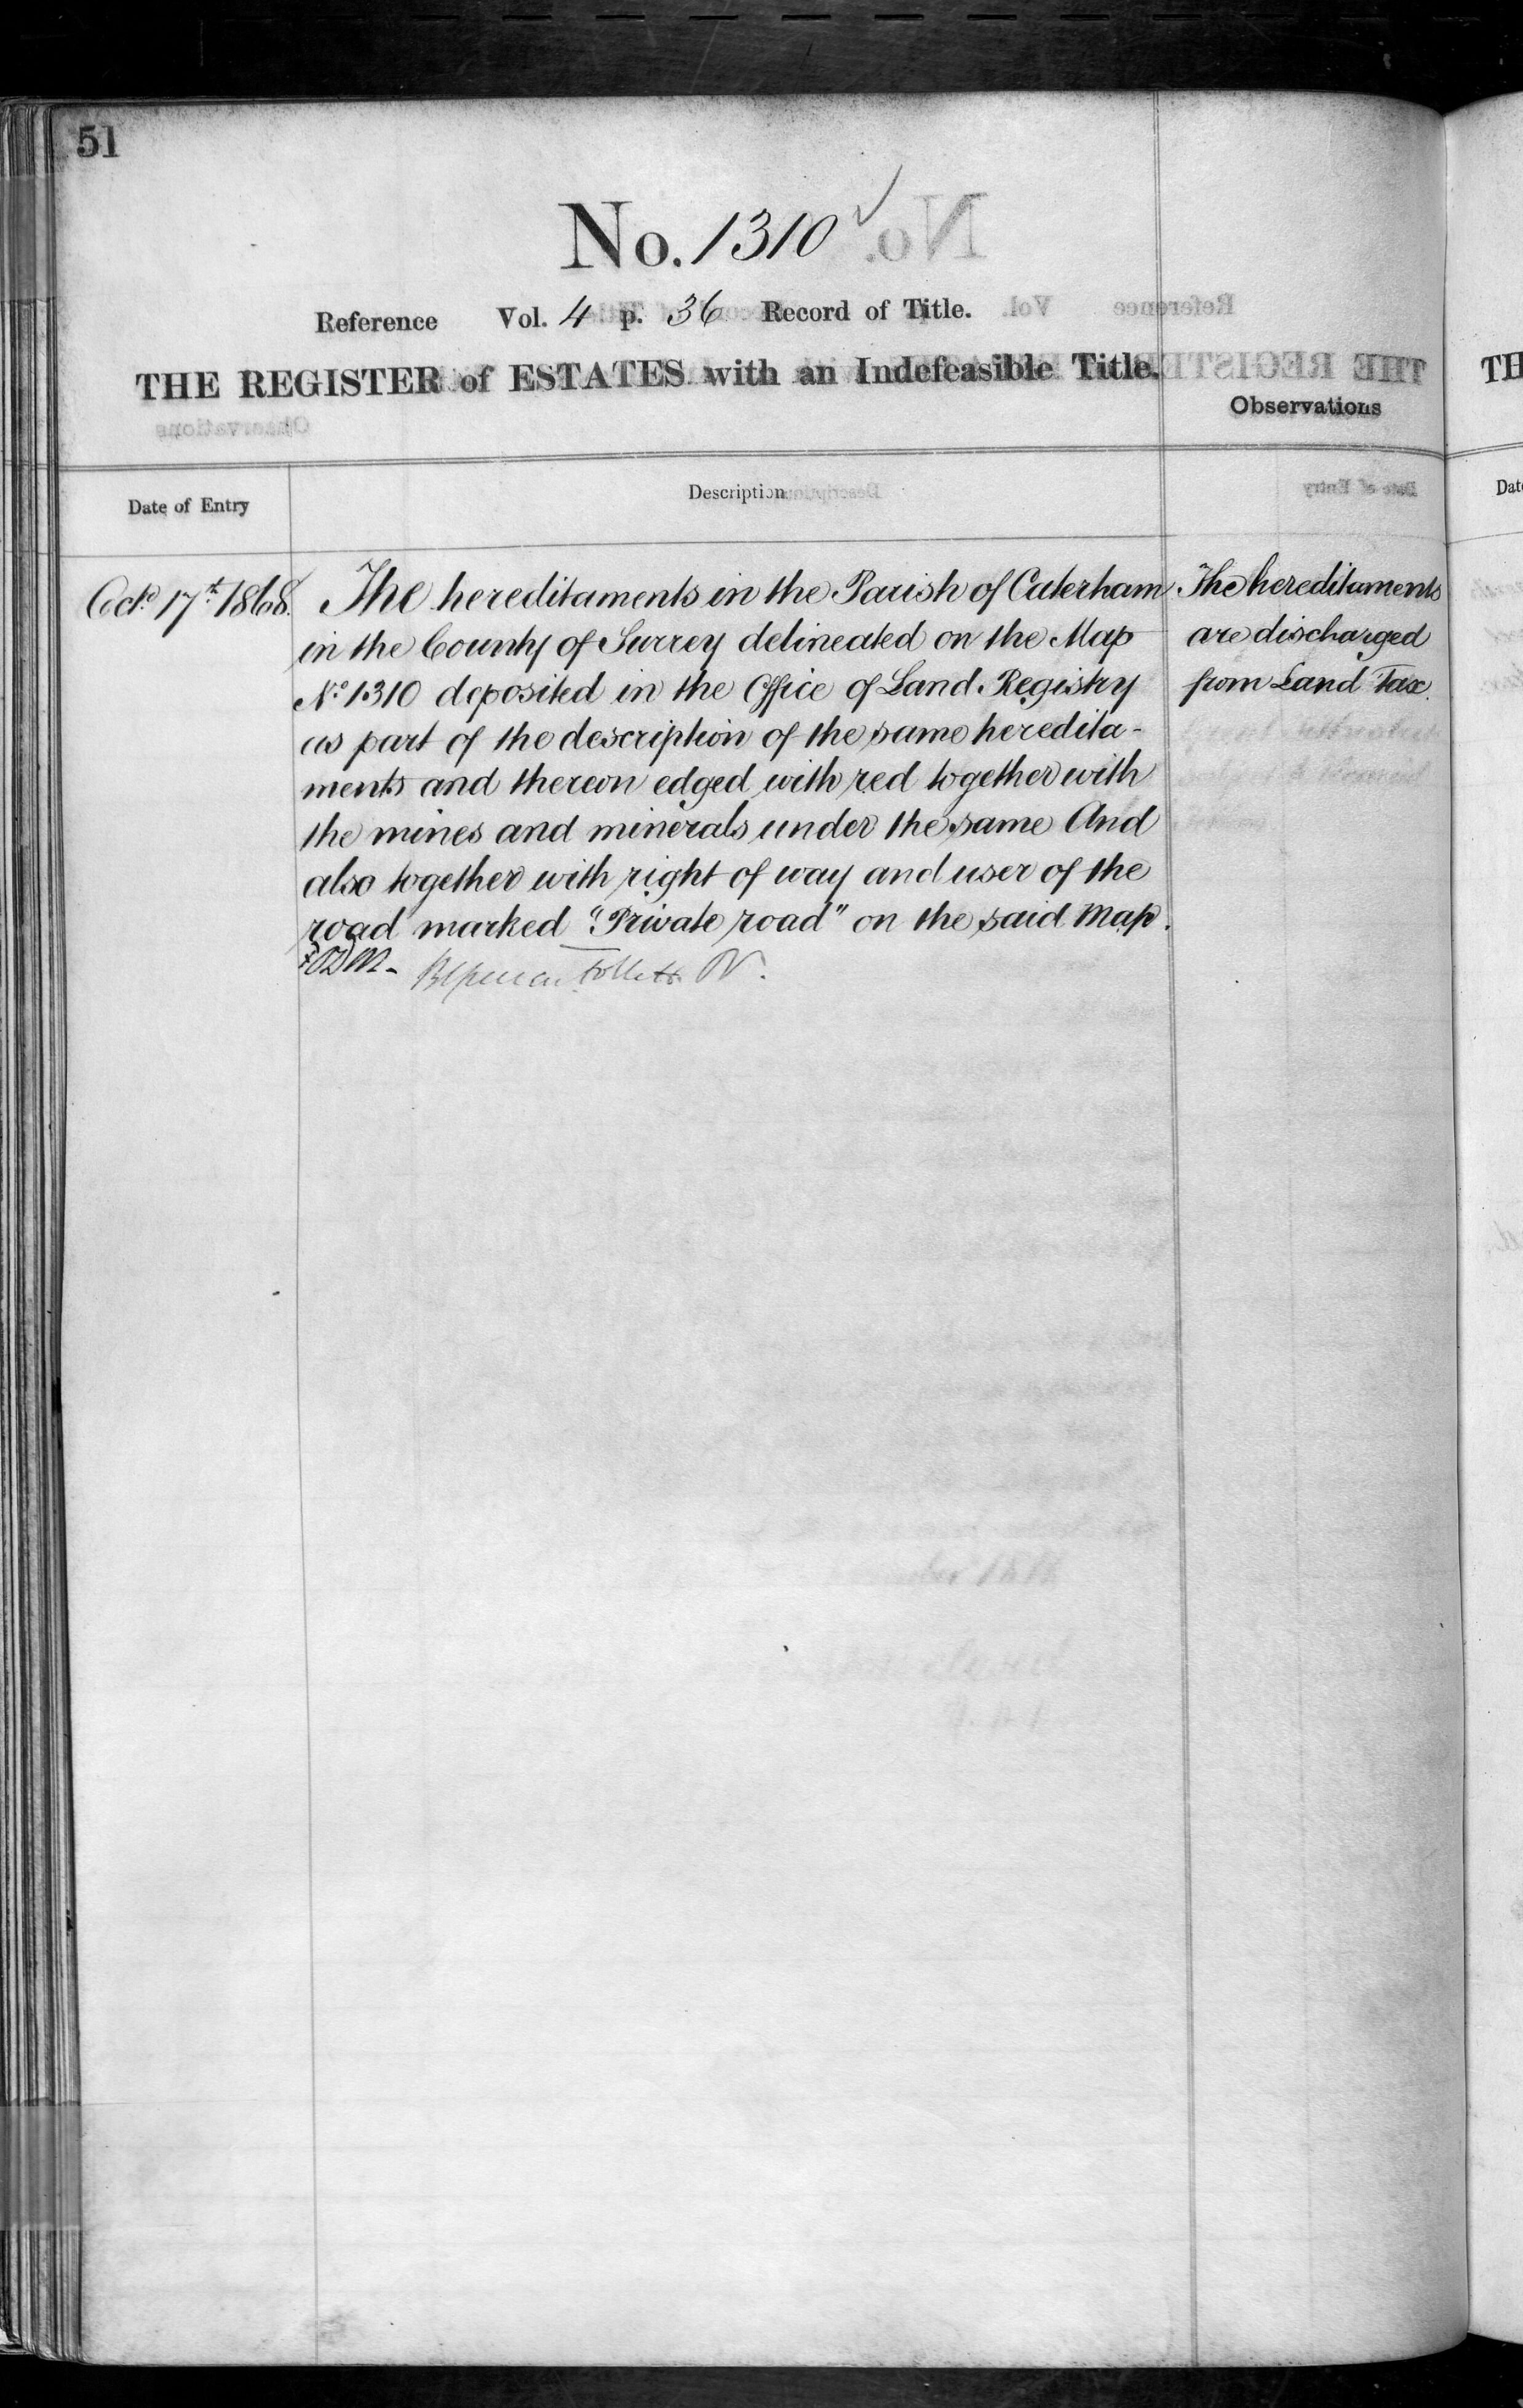 51
No. 1310
Reference Vol. 4 p. 36 Record of Title.
THE REGISTER of ESTATES with an Indefeasible Title.
Observations
Date of Entry
Description
Octr. 17th. 1868.
The hereditaments in the Parish of Caterham
in the County of Surrey delineated on the Map
No. 1310 deposited in the Office of Land Registry
as part of the description of the same heredita-
ments and thereon edged with red together with
the mines and minerals under the same And
also together with right of way and user of the
road marked "Private road" on the said Map.
Follett
The hereditaments
are discharged
from Land Tax.
TH
Dat